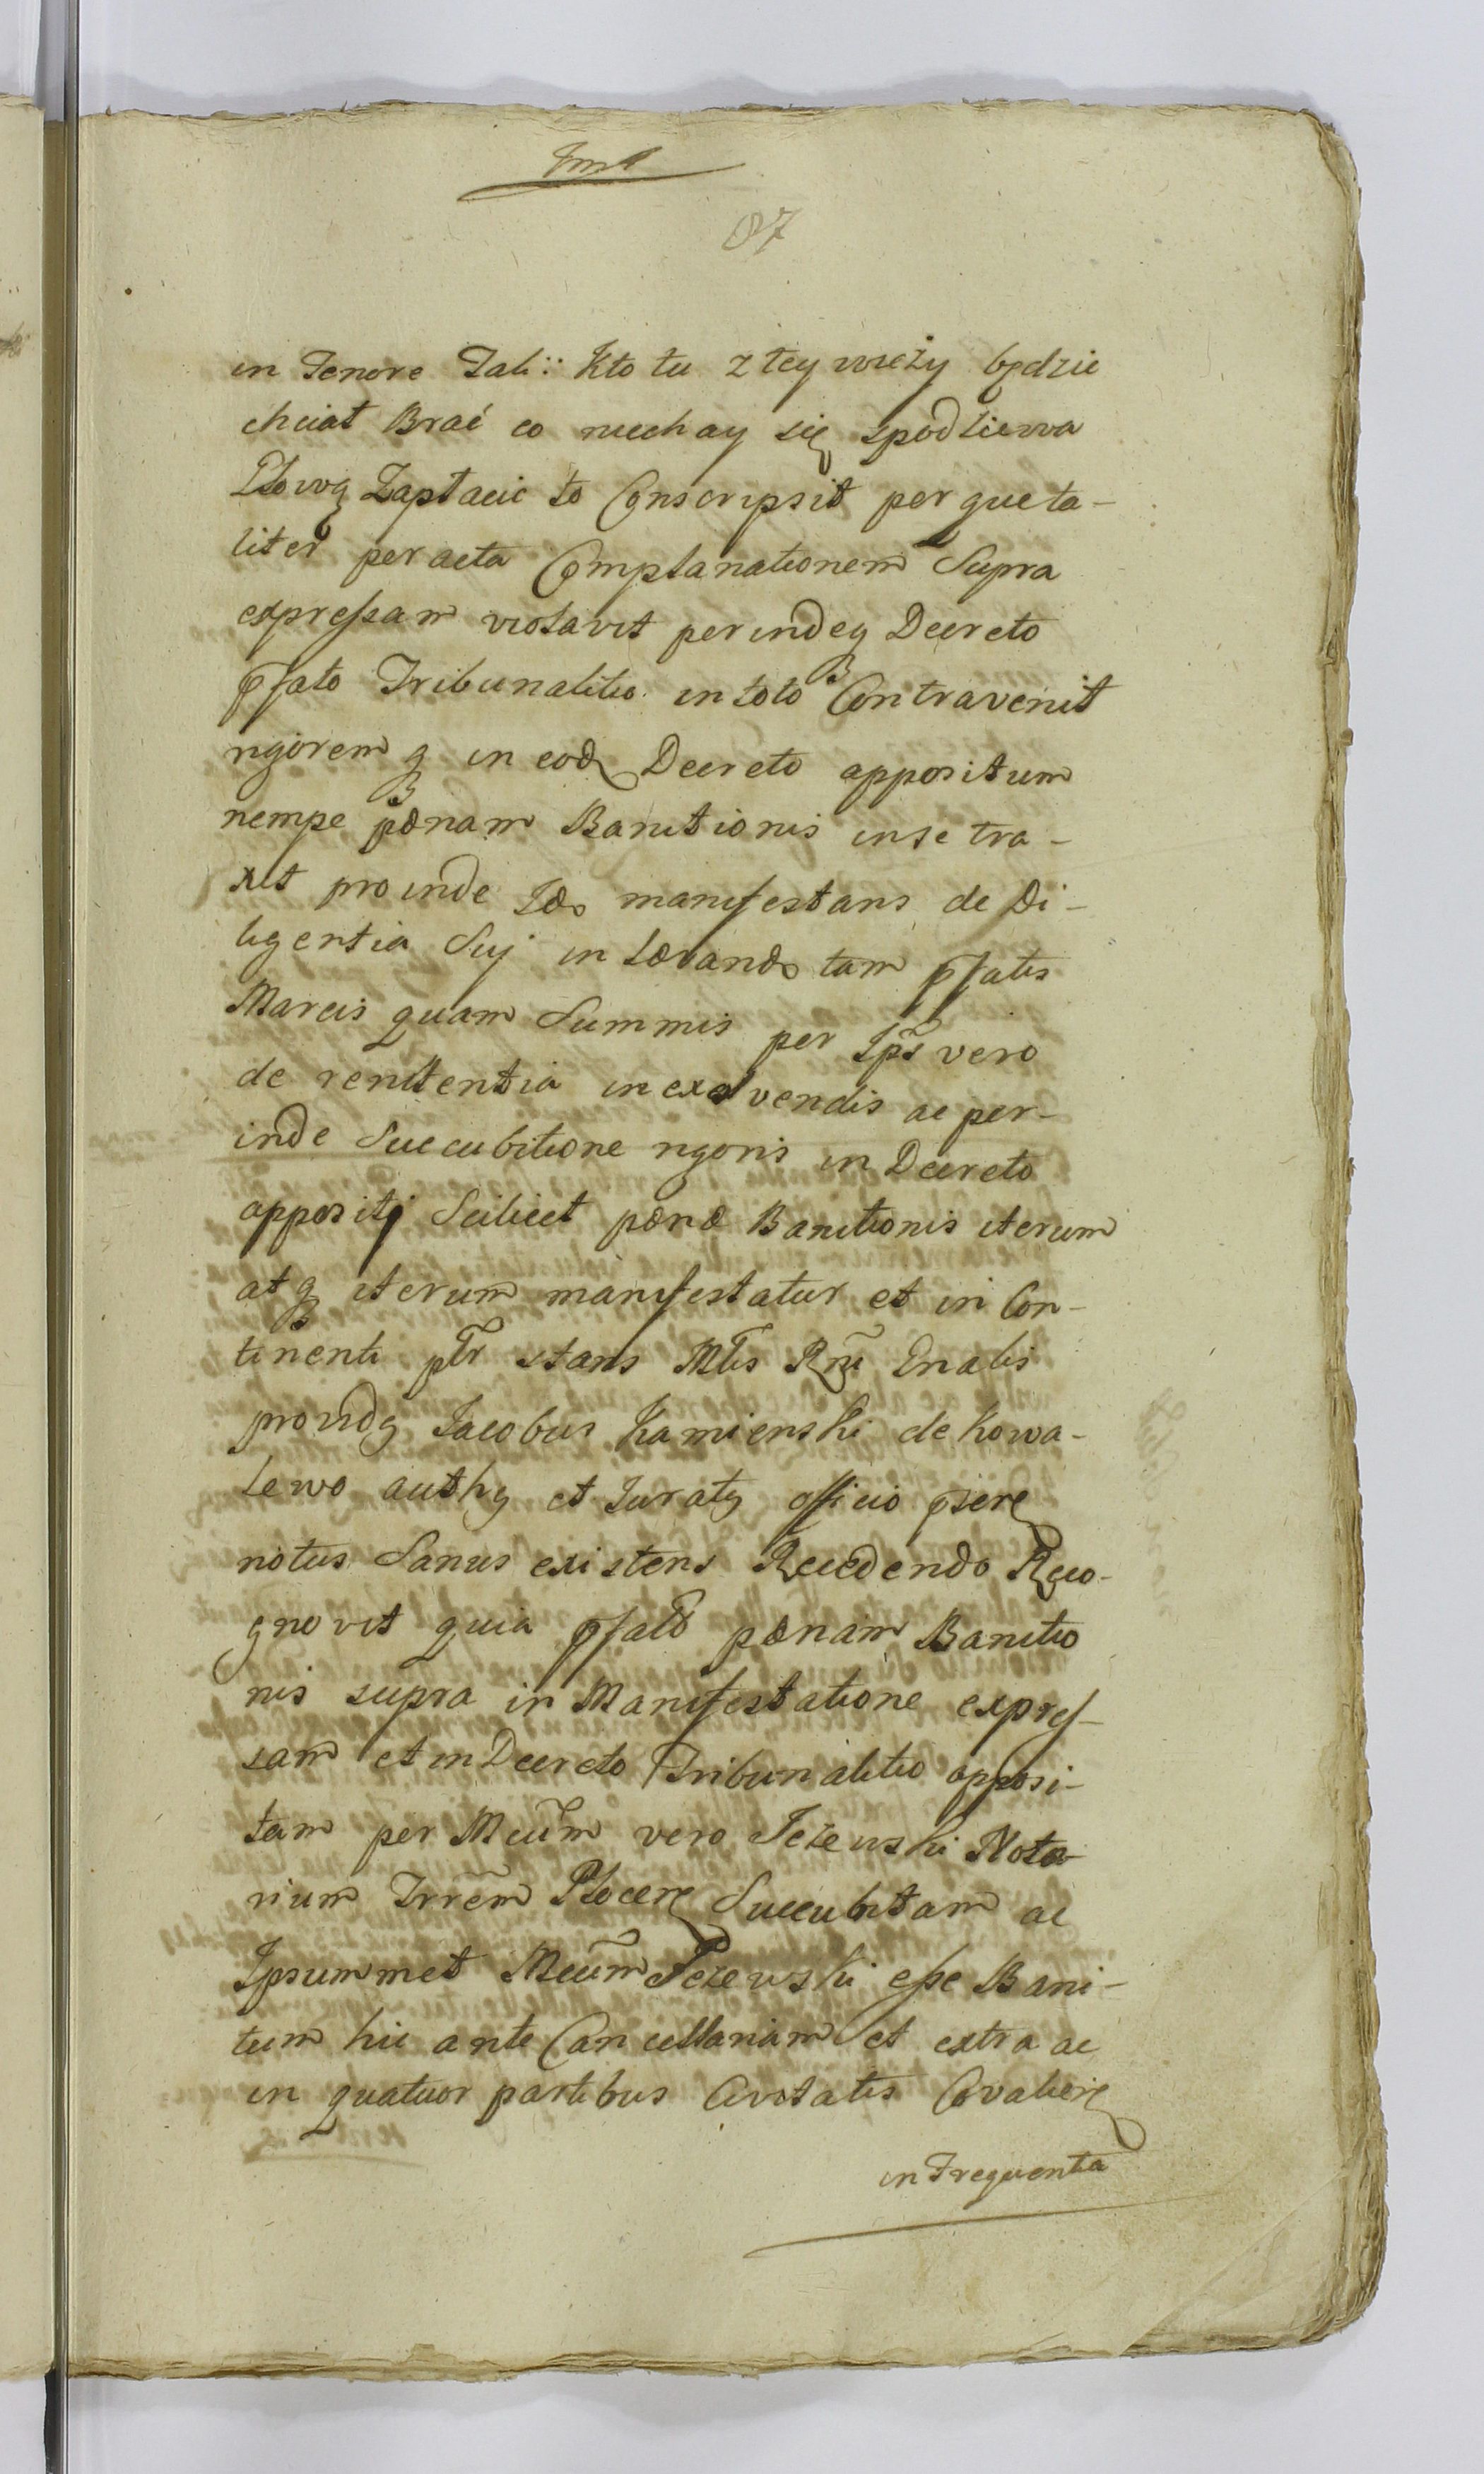 87
in Tenore Tali: Kto tu z tey wieży będzie
chciał Brać co niechay się spodziewa
Głową Zapłacic to Conscripsit perque ta-
liter peracta Complanationem Supra
expressam violavit perindeq Decreto
pfato Tribunalitio in toto Contravenit
rigoremq in eod Decreto appositum
nempe pænam Banitionis in se tra-
xit proinde Ide manifestans de Di-
ligentia Suj in levando tam pfatis
Marcis quam Summis per Ips vero
de renitentia in exolvendis ac per-
inde Succubitione rigoris in Decreto
appositj Scilicet pænæ Banitionis iterum
atq iterum manifestatur et in Con-
tinenti ptr stans Mtis Rni Gnalis
providq Jacobus Kamienski de Kowa-
lewo authq et Juratq officio pseñ
notus Sanus existens Recedendo Reco-
gnovit quia pfatã pænam Banitio
nis supra in Manifestatione expres-
sam et in Decreto Tribunalitio apposi-
tam per Mcum vero Jeżewski Nota-
rium Trrem Plocen Succubitam ac
Ipsummet Mcum Jeżewski esse Bani-
tum hic ante Cancellariam et extra ac
in quatuor partibus Civitatis Covalien
in Frequentia